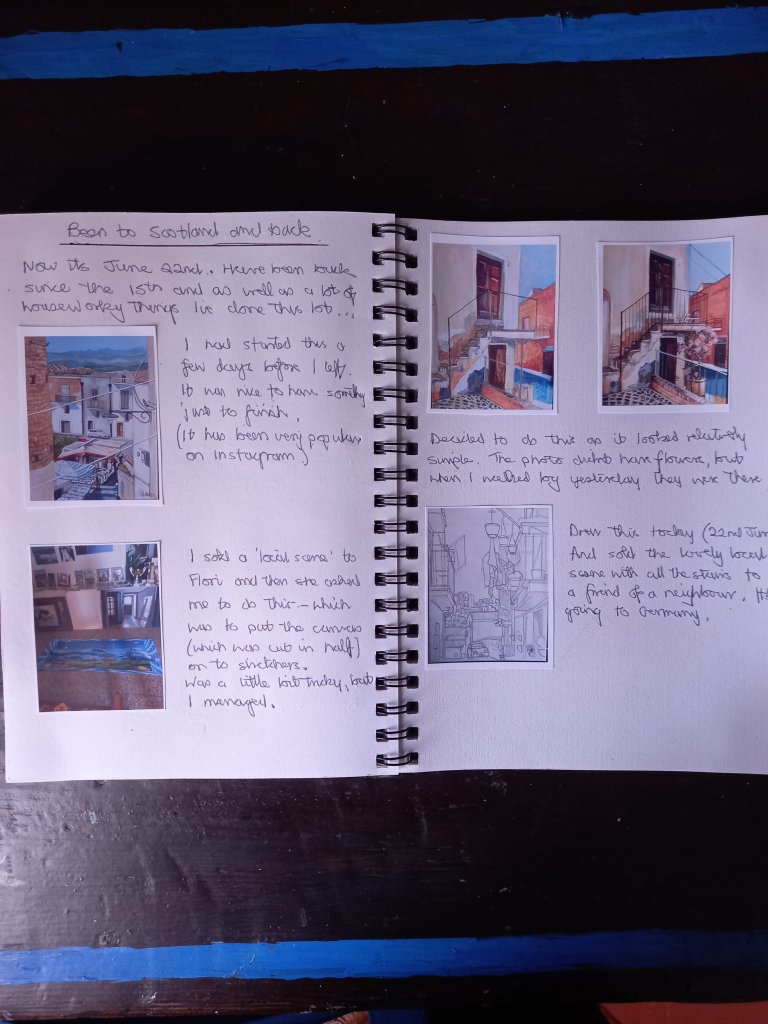 Been to Scotland and back.
Now its June 22nd.. Have been back
since the 15th and as well as a lot of
houseworky things I've done this lot...
I had started this a
few days before I left.
It was nice to have something
just to finish.
(It has been very popular
on Instagram)
I sold a 'local scene' to
Flori and then she asked
me to do this - which
was to put the canvas
(which was cut in half)
on to stretchers.
Was a little bit tricky, but
I managed.
Decided to do this as it looked relatively
simple. The photo didn't have flowers, but
when I walked by yesterday they were there
Drew this today (22nd Jun
And sold the lovely local
scene with all the stairs to
a friend of a neighbour. It
going to Germany.